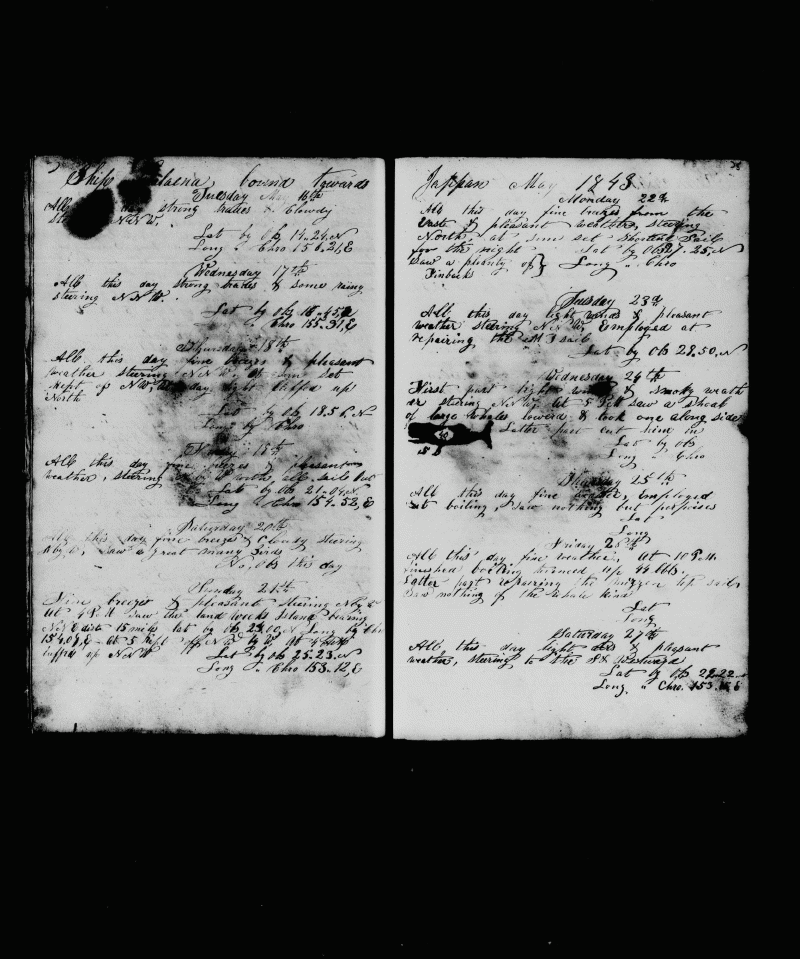 Ship Balaena, bound towards
Tuesday May 16th
All day strong trades & Cloudy
NNW.
Lat by Ob 14-24, N
Long " Chro 156,21,E
Wednesday 17th
All this day strong trades & some rainy
steering NNW.
Lat by Ob
" Chro 155-31,E
Thursday 18th
All this day fine breezes & pleasant
weather steering NNW. At
kept of NW, at day light luffed up
North
Lat by Ob 18.56, N
Long " Chro
All this day fine breezes & pleasant
weather, steering North, all sail out
Lat by Ob 21-04, N
Long " Chro 154-52,E
Saturday 20th
All this day fine breezes & Cloudy Steering
Saw a great many birds
No, Ob this day
Sunday 21st
Fine breezes & pleasant Steering N by W
At 4 P.M saw the land Island bearing
dist 15 miles lat by Ob Long by Chro
at 5
luffed up
Lat by Ob 25-23, N
Long " Chro 153-12,E
Jappan May 1843
Monday 22d
All this day fine breezes from the
East & pleasant weather, steering
North, at sun set Shortend Sail
for the night Lat by Ob 27-25, N
Saw a plenty of } Long " Chro
Finbacks
Tuesday 23d
All this day light winds & pleasant
weather steering Employed at
repairing the sail
Lat by Ob 28.50, N
Wednesday 24th
First part light winds & Smoky weath
er stering At 5 P.M saw a shoal
of large whales lowerd & took one along side
Latter part cut him in
Lat by Ob
Long " Chro
Thursday 25th
All this day fine weather, Employed
at boiling, Saw nothing but porpoises
Lat
Long
Friday
All this day fine weather, At 10 P.M.
finished boiling turned up 44 bbls.
Latter part repairing the mizzen top sail
Saw nothing of the whale kind
Lat
Long
Saturday 27th
All this day light airs & pleasant
weather, steering to the Westward
Lat by Ob 29-22-N
Long. " Chro. 153.